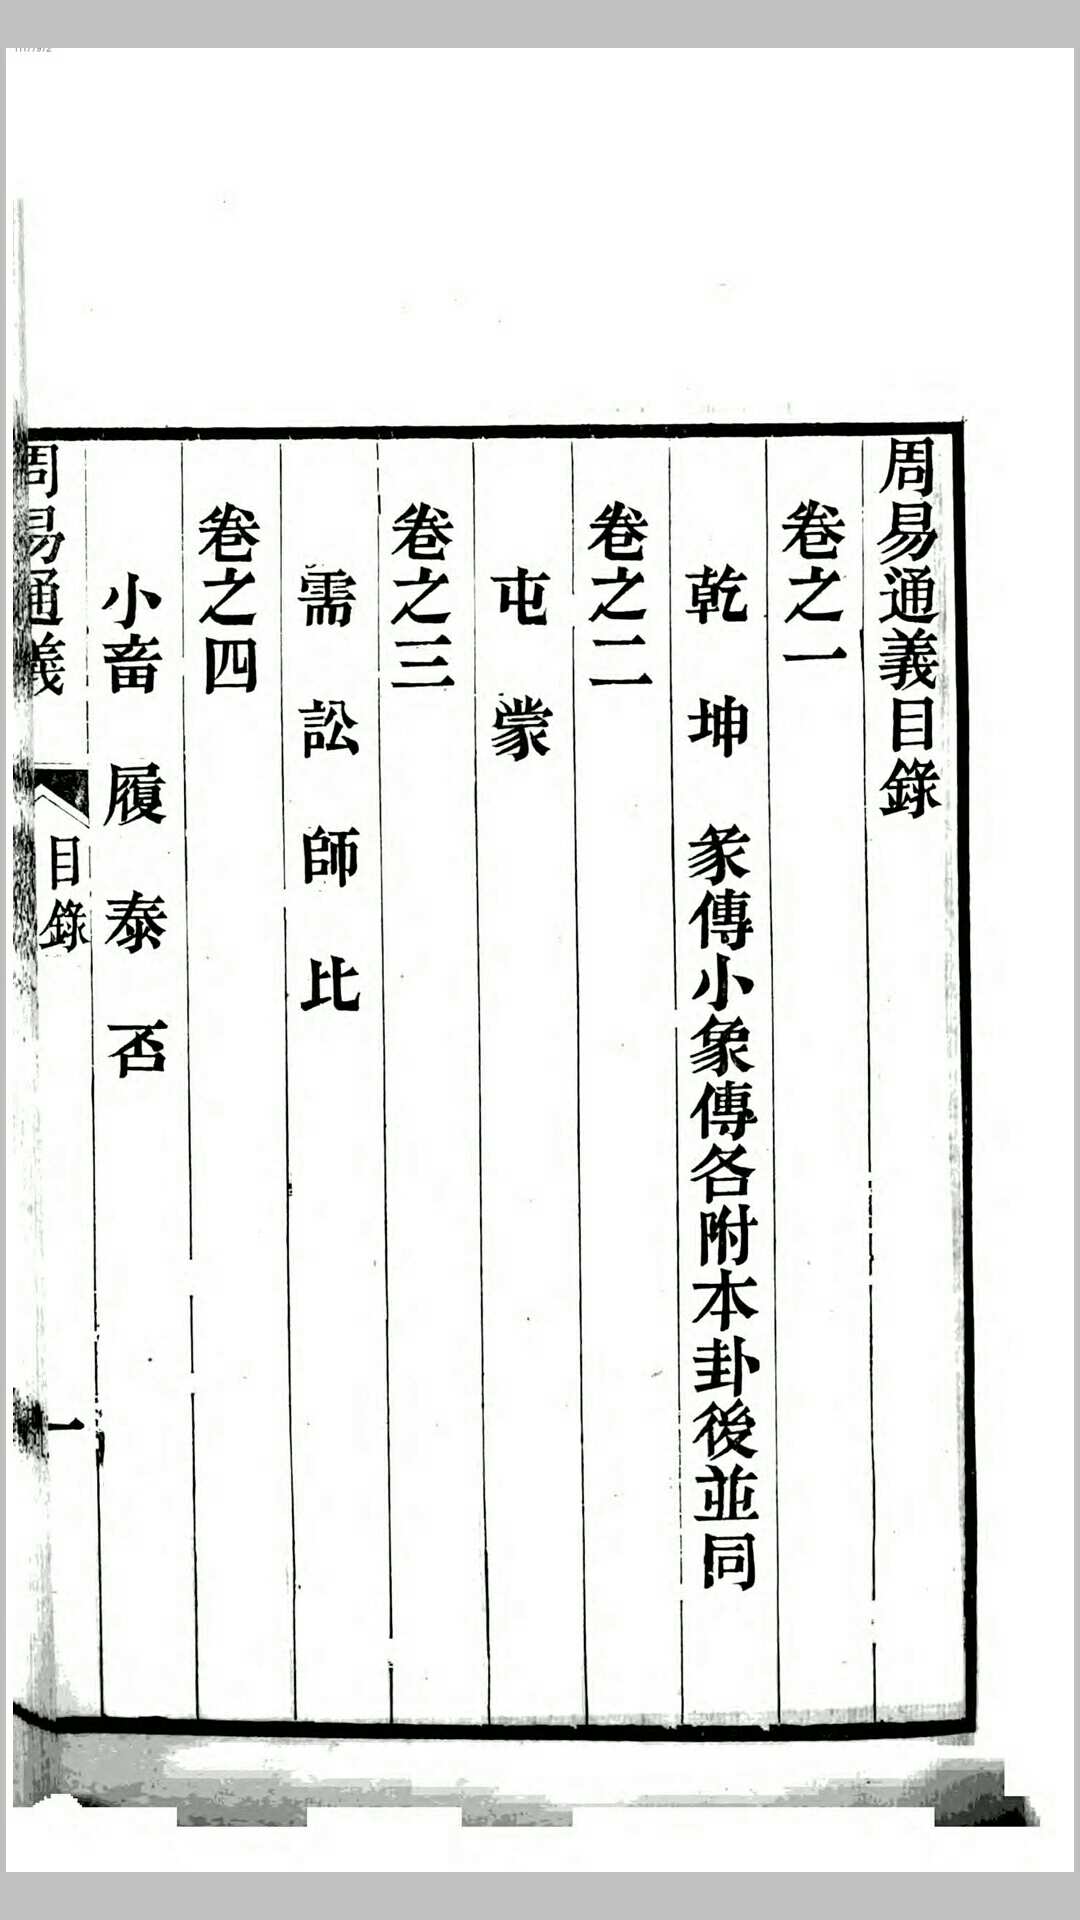 周易通義目錄
卷之一
乾 坤 彖傳小象傳各附本卦後並同
卷之二
屯 蒙
卷之三
需 訟 師 比
卷之四
小畜 履 泰 否
周易通義 目錄 一